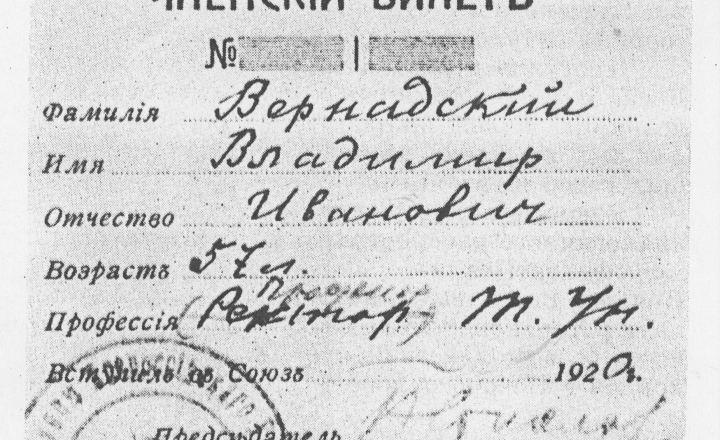 ЧЛЕНСКІЙ БИЛЕТЪ
№ |
Фамилія Вернадский
Имя Владимир
Отчество Иванович
Возрастъ 57 л.
Профессія Ректор Т. Ун.
Вступилъ въ Союзъ 1920 г.
Предсѣдатель